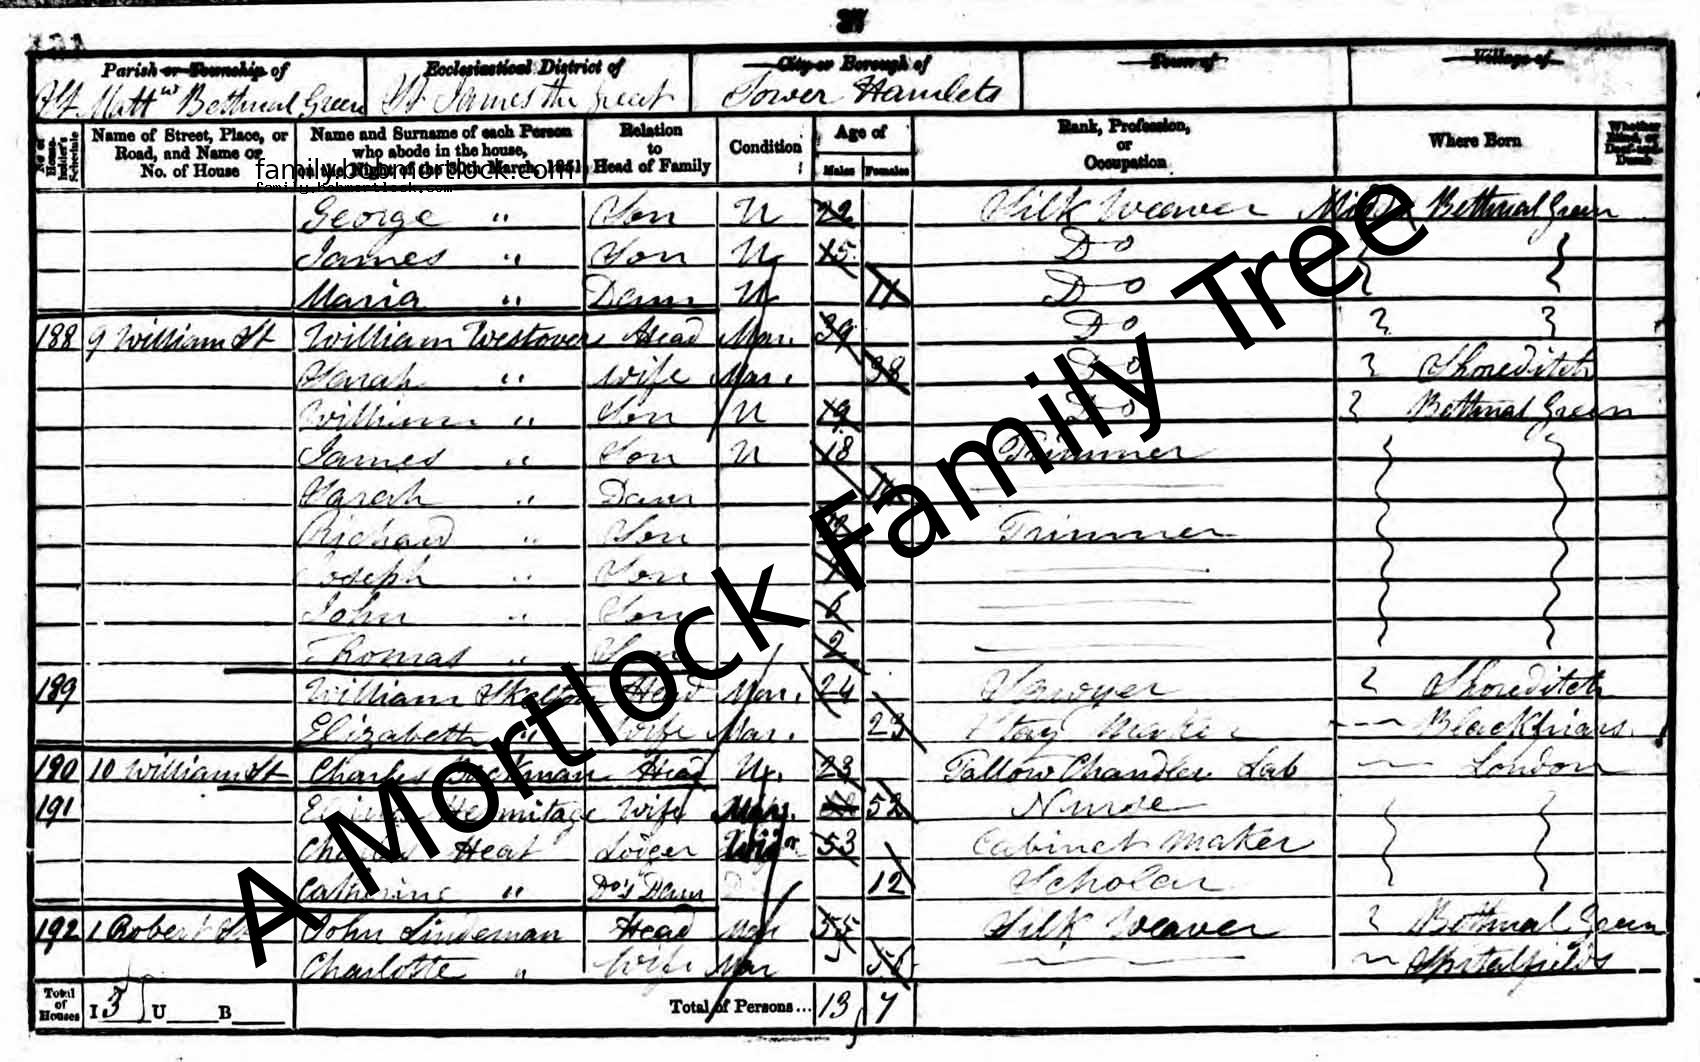 37
Parish or Township of Ecclesiastical District of City or Borough of Town of Village of
St. Matt.ws Bethnal Green St. James the Great Tower Hamlets
No. of House-holder's Schedule Name of Street, Place, or Road, and Name or No. of House Name and Surname of each Person who abode in the house, on the Night of the 30th March, 1851 Relation to Head of Family Condition Age of Males Females Rank, Profession, or Occupation Where Born Whether Blind, or Deaf-and-Dumb
family.bobmortlock.com
family.bobmortlock.com
George " Son U 22 Silk Weaver Bethnal Green
James " Son U 15 Do
Maria " Daur U 11 Do
188 9 William St William Westover Head Mar. 39 Do
Sarah " Wife Mar. 38 Do Shoreditch
William " Son U 19 Do Bethnal Green
James " Son U 18 Trimmer
Sarah " Daur
Richard " Son Trimmer
Joseph " Son
John " Son 6
Thomas " Son 2
189 William Skelton Head Mar. 24 Sawyer Shoreditch
Elizabeth " Wife Mar. 23 Stay Maker Blackfriars
190 10 William St Charles Head U. 23 Tallow Chandler Lab London
191 Hermitage Wife Mar. 52 Nurse
Charles Heat Lodger Widr 53 Cabinet Maker
Catherine " Do's Daur 12 Scholar
192 1 Robert St John Lindeman Head Mar 55 Silk Weaver Bethnal Green
Charlotte " Wife Mar 56 Spitalfields
Total of Houses I 3 U B Total of Persons... 13 7
A Mortlock Family Tree